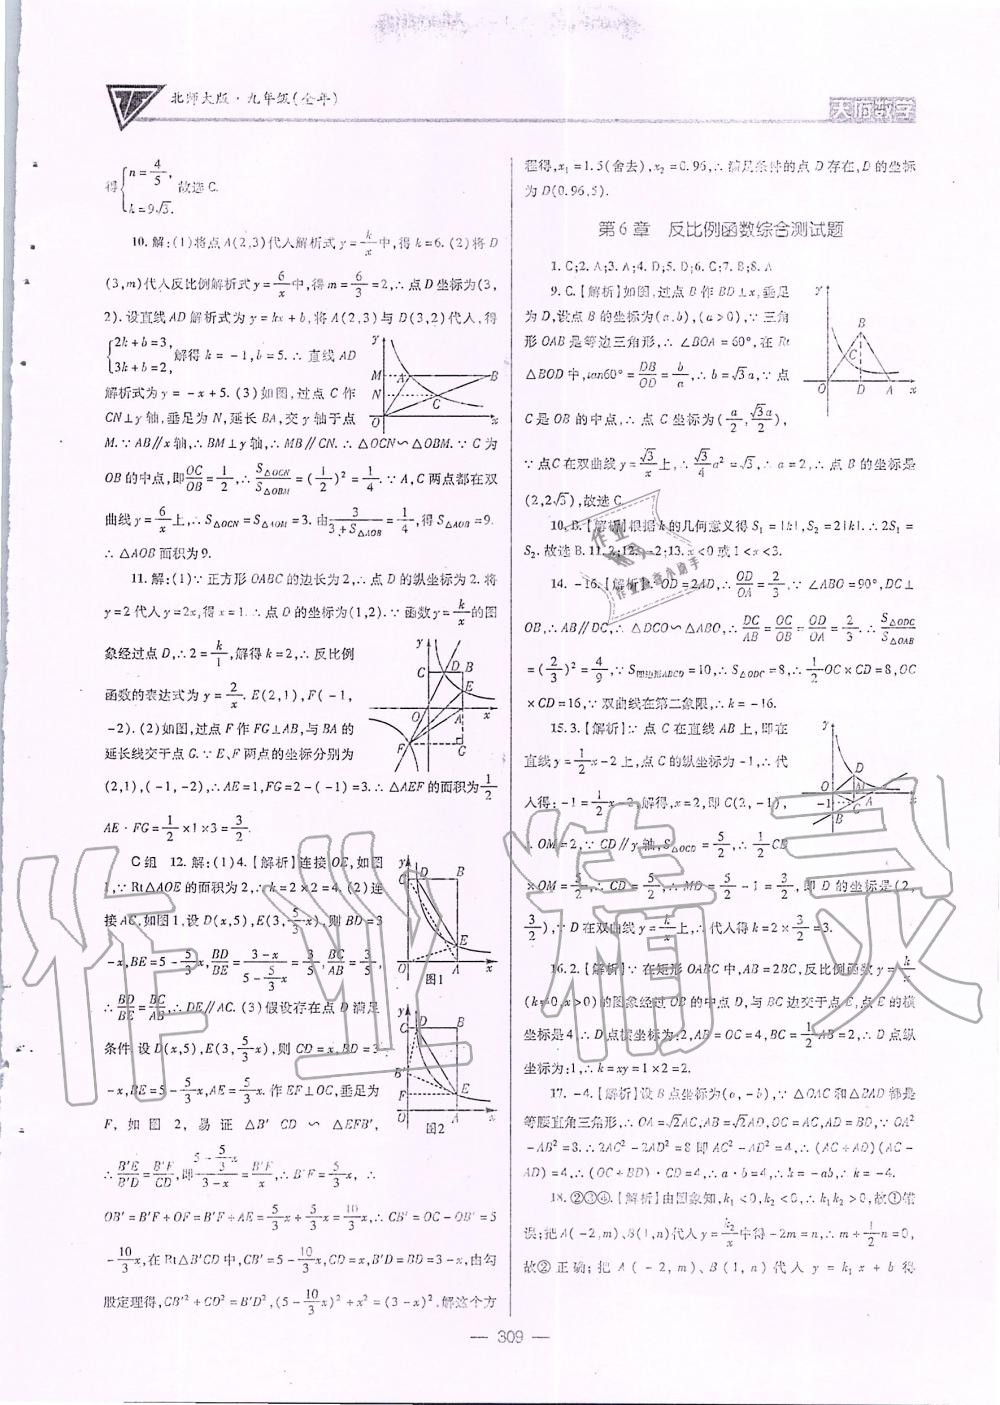 北师大版·九年级(全年)
天府数学
得{n=4/5, k=9√3. 故选C.
10.解:(1)将点A(2,3)代入解析式y=k/x中,得k=6.(2)将D
(3,m)代入反比例解析式y=6/x中,得m=6/3=2,∴点D坐标为(3,
2).设直线AD解析式为y=kx+b,将A(2,3)与D(3,2)代入,得
{2k+b=3, 3k+b=2, 解得k=-1,b=5.∴直线AD
解析式为y=-x+5.(3)如图,过点C作
CN⊥y轴,垂足为N,延长BA,交y轴于点
M.∵AB∥x轴,∴BM⊥y轴,∴MB∥CN.∴△OCN∽△OBM.∵C为
OB的中点,即OC/OB=1/2,∴S△OCN/S△OBM=(1/2)²=1/4.∵A,C两点都在双
曲线y=6/x上,∴S△OCN=S△AOM=3.由3/(3+S△AOB)=1/4,得S△AOB=9.
∴△AOB面积为9.
11.解:(1)∵正方形OABC的边长为2,∴点D的纵坐标为2.将
y=2代入y=2x,得x=1.∴点D的坐标为(1,2).∵函数y=k/x的图
象经过点D,∴2=k/1,解得k=2,∴反比例
函数的表达式为y=2/x.E(2,1),F(-1,
-2).(2)如图,过点F作FG⊥AB,与BA的
延长线交于点G.∵E、F两点的坐标分别为
(2,1),(-1,-2),∴AE=1,FG=2-(-1)=3.∴△AEF的面积为1/2
AE·FG=1/2×1×3=3/2.
C组 12.解:(1)4.【解析】连接OE,如图
1,∵Rt△AOE的面积为2,∴k=2×2=4.(2)连
接AC,如图1,设D(x,5),E(3,5/3x),则BD=3
-x,BE=5-5/3x,BD/BE=(3-x)/(5-5/3x)=3/5,BC/AB=3/5,
∴BD/BE=BC/AB,∴DE∥AC.(3)假设存在点D满足
条件.设D(x,5),E(3,5/3x),则CD=x,BD=3
-x,BE=5-5/3x,AE=5/3x.作EF⊥OC,垂足为
F,如图2,易证△B'CD∽△EFB',
∴B'E/B'D=B'F/CD,即(5-5/3x)/(3-x)=B'F/x,∴B'F=5/3x,∴
OB'=B'F+OF=B'F+AE=5/3x+5/3x=10/3x,∴CB'=OC-OB'=5
-10/3x,在Rt△B'CD中,CB'=5-10/3x,CD=x,B'D=BD=3-x,由勾
股定理得,CB'²+CD²=B'D²,(5-10/3x)²+x²=(3-x)².解这个方
图1
图2
程得,x₁=1.5(舍去),x₂=0.96,∴满足条件的点D存在,D的坐标
为D(0.96,5).
第6章 反比例函数综合测试题
1.C;2.A;3.A;4.D;5.D;6.C;7.B;8.A
9.C.【解析】如图,过点B作BD⊥x,垂足
为D,设点B的坐标为(a,b),(a>0),∵三角
形OAB是等边三角形,∴∠BOA=60°,在Rt
△BOD中,tan60°=DB/OD=b/a,∴b=√3a,∵点
C是OB的中点,∴点C坐标为(a/2,√3a/2),
∵点C在双曲线y=√3/x上,∴√3/4a²=√3,∴a=2,∴点B的坐标是
(2,2√3),故选C.
10.B.【解析】根据k的几何意义得S₁=|k|,S₂=2|k|.∴2S₁=
S₂.故选B.11.2;12.-2;13.x<0或1<x<3.
14.-16.【解析】∵OD=2AD,∴OD/OA=2/3,∵∠ABO=90°,DC⊥
OB,∴AB∥DC,∴△DCO∽△ABO,∴DC/AB=OC/OB=OD/OA=2/3.∴S△ODC/S△OAB
=(2/3)²=4/9,∵S四边形ABCD=10,∴S△ODC=8,∴1/2OC×CD=8,OC
×CD=16,∵双曲线在第二象限,∴k=-16.
15.3.【解析】∵点C在直线AB上,即在
直线y=1/2x-2上,点C的纵坐标为-1,∴代
入得:-1=1/2x-2,解得,x=2,即C(2,-1),
∴OM=2,∵CD∥y轴,S△OCD=5/2,∴1/2CD
×OM=5/2,∴CD=5/2,∴MD=5/2-1=3/2,即D的坐标是(2,
3/2),∵D在双曲线y=k/x上,∴代入得k=2×3/2=3.
16.2.【解析】∵在矩形OABC中,AB=2BC,反比例函数y=k/x
(k≠0,x>0)的图象经过OB的中点D,与BC边交于点E,点E的横
坐标是4,∴D点横坐标为:2,AB=OC=4,BC=1/2AB=2,∴D点纵
坐标为:1,∴k=xy=1×2=2.
17.-4.【解析】设B点坐标为(a,-b),∵△OAC和△BAD都是
等腰直角三角形,∴OA=√2AC,AB=√2AD,OC=AC,AD=BD,∵OA²
-AB²=8.∴2AC²-2AD²=8即AC²-AD²=4,∴(AC+AD)(AC-
AD)=4,∴(OC+BD)·CD=4,∴a·b=4,∴k=-ab,∴k=-4.
18.②③④.【解析】由图象知,k₁<0,k₂<0,∴k₁k₂>0,故①错
误;把A(-2,m)、B(1,n)代入y=k₂/x中得-2m=n,∴m+1/2n=0,
故②正确;把A(-2,m)、B(1,n)代入y=k₁x+b得
— 309 —
作业精灵